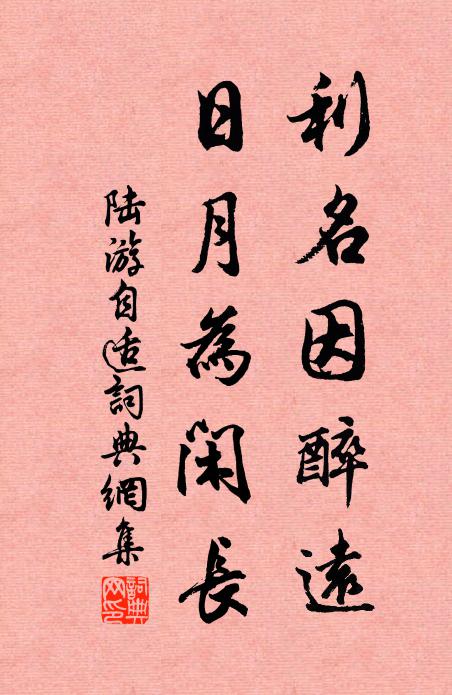 利名因醉遠
日月為閑長
陆游自适詞典網集
詞典網印